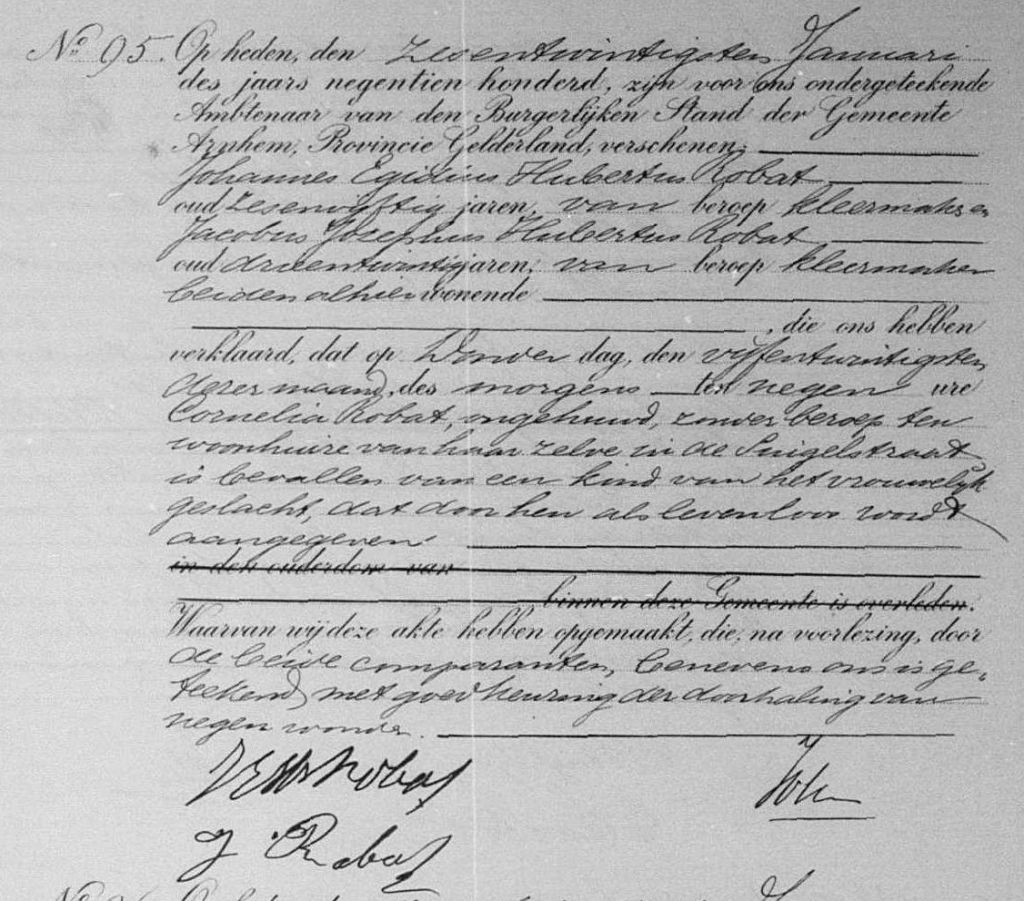 No 95. Op heden, den zesentwintigsten Januari
des jaars negentien honderd, zijn voor ons ondergeteekende
Ambtenaar van den Burgerlijken Stand der Gemeente
Arnhem, Provincie Gelderland, verschenen:
Johannes Egidius Hubertus Robat
oud zesenvyftig jaren, van beroep kleermaker en
Jacobus Josephus Hubertus Robat
oud drieentwintig jaren, van beroep kleermaker
beiden alhier wonende
, die ons hebben
verklaard, dat op Donder dag, den vijfentwintigsten
dezer maand, des morgens ten negen ure
Cornelia Robat, ongehuwd, zonder beroep ten
woonhuize van haar zelve in de Singelstraat
is bevallen van een kind van het vrouwelijk
geslacht, dat door hen als levenloos wordt
aangegeven.
in den ouderdom van
binnen deze Gemeente is overleden.
Waarvan wij deze akte hebben opgemaakt, die, na voorlezing, door
de beide comparanten, benevens ons is ge-
teekend, met goedkeuring der doorhaling van
negen woorden.
JEH Robat
J. Robat